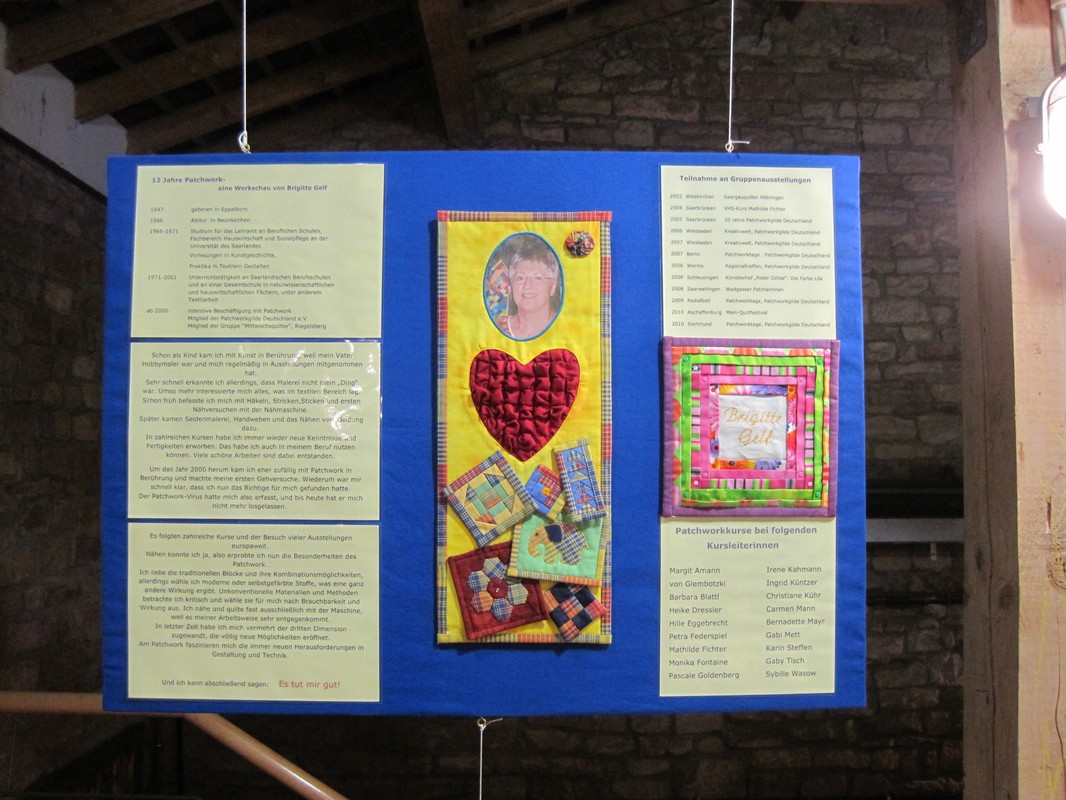 12 Jahre Patchwork-
eine Werkschau von Brigitte Gelf
1947 geboren in Eppelborn
1966 Abitur in Neunkirchen
1966-1971 Studium für das Lehramt an Beruflichen Schulen,
Fachbereich Hauswirtschaft und Sozialpflege an der
Universität des Saarlandes
Vorlesungen in Kunstgeschichte,
Praktika in Textilem Gestalten
1971-2001 Unterrichtstätigkeit an Saarländischen Berufsschulen
und an einer Gesamtschule in naturwissenschaftlichen
und hauswirtschaftlichen Fächern, unter anderem
Textilarbeit
ab 2000 intensive Beschäftigung mit Patchwork
Mitglied der Patchworkgilde Deutschland e.V.
Mitglied der Gruppe "Mittwochsquilter", Riegelsberg
Schon als Kind kam ich mit Kunst in Berührung, weil mein Vater
Hobbymaler war und mich regelmäßig in Ausstellungen mitgenommen
hat.
Sehr schnell erkannte ich allerdings, dass Malerei nicht mein „Ding"
war. Umso mehr interessierte mich alles, was im textilen Bereich lag.
Schon früh befasste ich mich mit Häkeln, Stricken,Sticken und ersten
Nähversuchen mit der Nähmaschine.
Später kamen Seidenmalerei, Handweben und das Nähen von Kleidung
dazu.
In zahlreichen Kursen habe ich immer wieder neue Kenntnisse und
Fertigkeiten erworben. Das habe ich auch in meinem Beruf nutzen
können. Viele schöne Arbeiten sind dabei entstanden.
Um das Jahr 2000 herum kam ich eher zufällig mit Patchwork in
Berührung und machte meine ersten Gehversuche. Wiederum war mir
schnell klar, dass ich nun das Richtige für mich gefunden hatte.
Der Patchwork-Virus hatte mich also erfasst, und bis heute hat er mich
nicht mehr losgelassen.
Es folgten zahlreiche Kurse und der Besuch vieler Ausstellungen
europaweit.
Nähen konnte ich ja, also erprobte ich nun die Besonderheiten des
Patchwork.
Ich liebe die traditionellen Blöcke und ihre Kombinationsmöglichkeiten,
allerdings wähle ich moderne oder selbstgefärbte Stoffe, was eine ganz
andere Wirkung ergibt. Unkonventionelle Materialien und Methoden
betrachte ich kritisch und wähle sie für mich nach Brauchbarkeit und
Wirkung aus. Ich nähe und quilte fast ausschließlich mit der Maschine,
weil es meiner Arbeitsweise sehr entgegenkommt.
In letzter Zeit habe ich mich vermehrt der dritten Dimension
zugewandt, die völlig neue Möglichkeiten eröffnet.
Am Patchwork faszinieren mich die immer neuen Herausforderungen in
Gestaltung und Technik.
Und ich kann abschließend sagen: Es tut mir gut!
Teilnahme an Gruppenausstellungen
2003 Weiskirchen Saargauquilter Hilbringen
2004 Saarbrücken VHS-Kurs Mathilde Fichter
2005 Saarbrücken 25 Jahre Patchworkgilde Deutschland
2006 Wiesbaden Kreativwelt, Patchworkgilde Deutschland
2007 Wiesbaden Kreativwelt, Patchworkgilde Deutschland
2007 Berlin Patchworktage , Patchworkgilde Deutschland
2008 Worms Regionaltreffen, Patchworkgilde Deutschland
2008 Schleusingen Künstlerhof „Roter Ochse": Die Farbe Lila
2008 Saarwellingen Wadgasser Patcherinnen
2009 Radolfzell Patchworktage, Patchworkgilde Deutschland
2010 Aschaffenburg Main-Quiltfestival
2010 Dortmund Patchworktage, Patchworkgilde Deutschland
Brigitte
Gelf
Patchworkkurse bei folgenden
Kursleiterinnen
Margit Amann
von Glembotzki
Barbara Blattl
Heike Dressler
Hille Eggebrecht
Petra Federspiel
Mathilde Fichter
Monika Fontaine
Pascale Goldenberg
Irene Kahmann
Ingrid Küntzer
Christiane Kühr
Carmen Mann
Bernadette Mayr
Gabi Mett
Karin Steffen
Gaby Tisch
Sybille Wasow